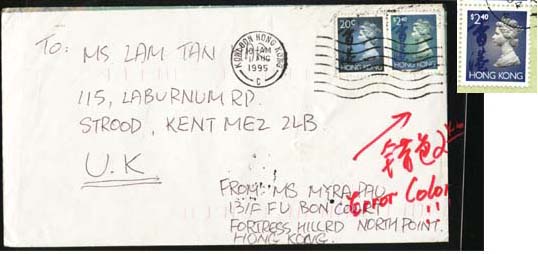 TO: MS LAM TAN
115, LABURNUM RD.
STROOD, KENT ME2 2LB.
U.K
HONG KONG
AM
AUG
1995
C
20¢
香港
HONG KONG
$2.40
香港
HONG KONG
$2.40
香港
HONG KONG
錯色
Error Color
!!
FROM: MS MYRA PAU
13/F FU BON COURT
FORTRESS HILL RD NORTH POINT.
HONG KONG.